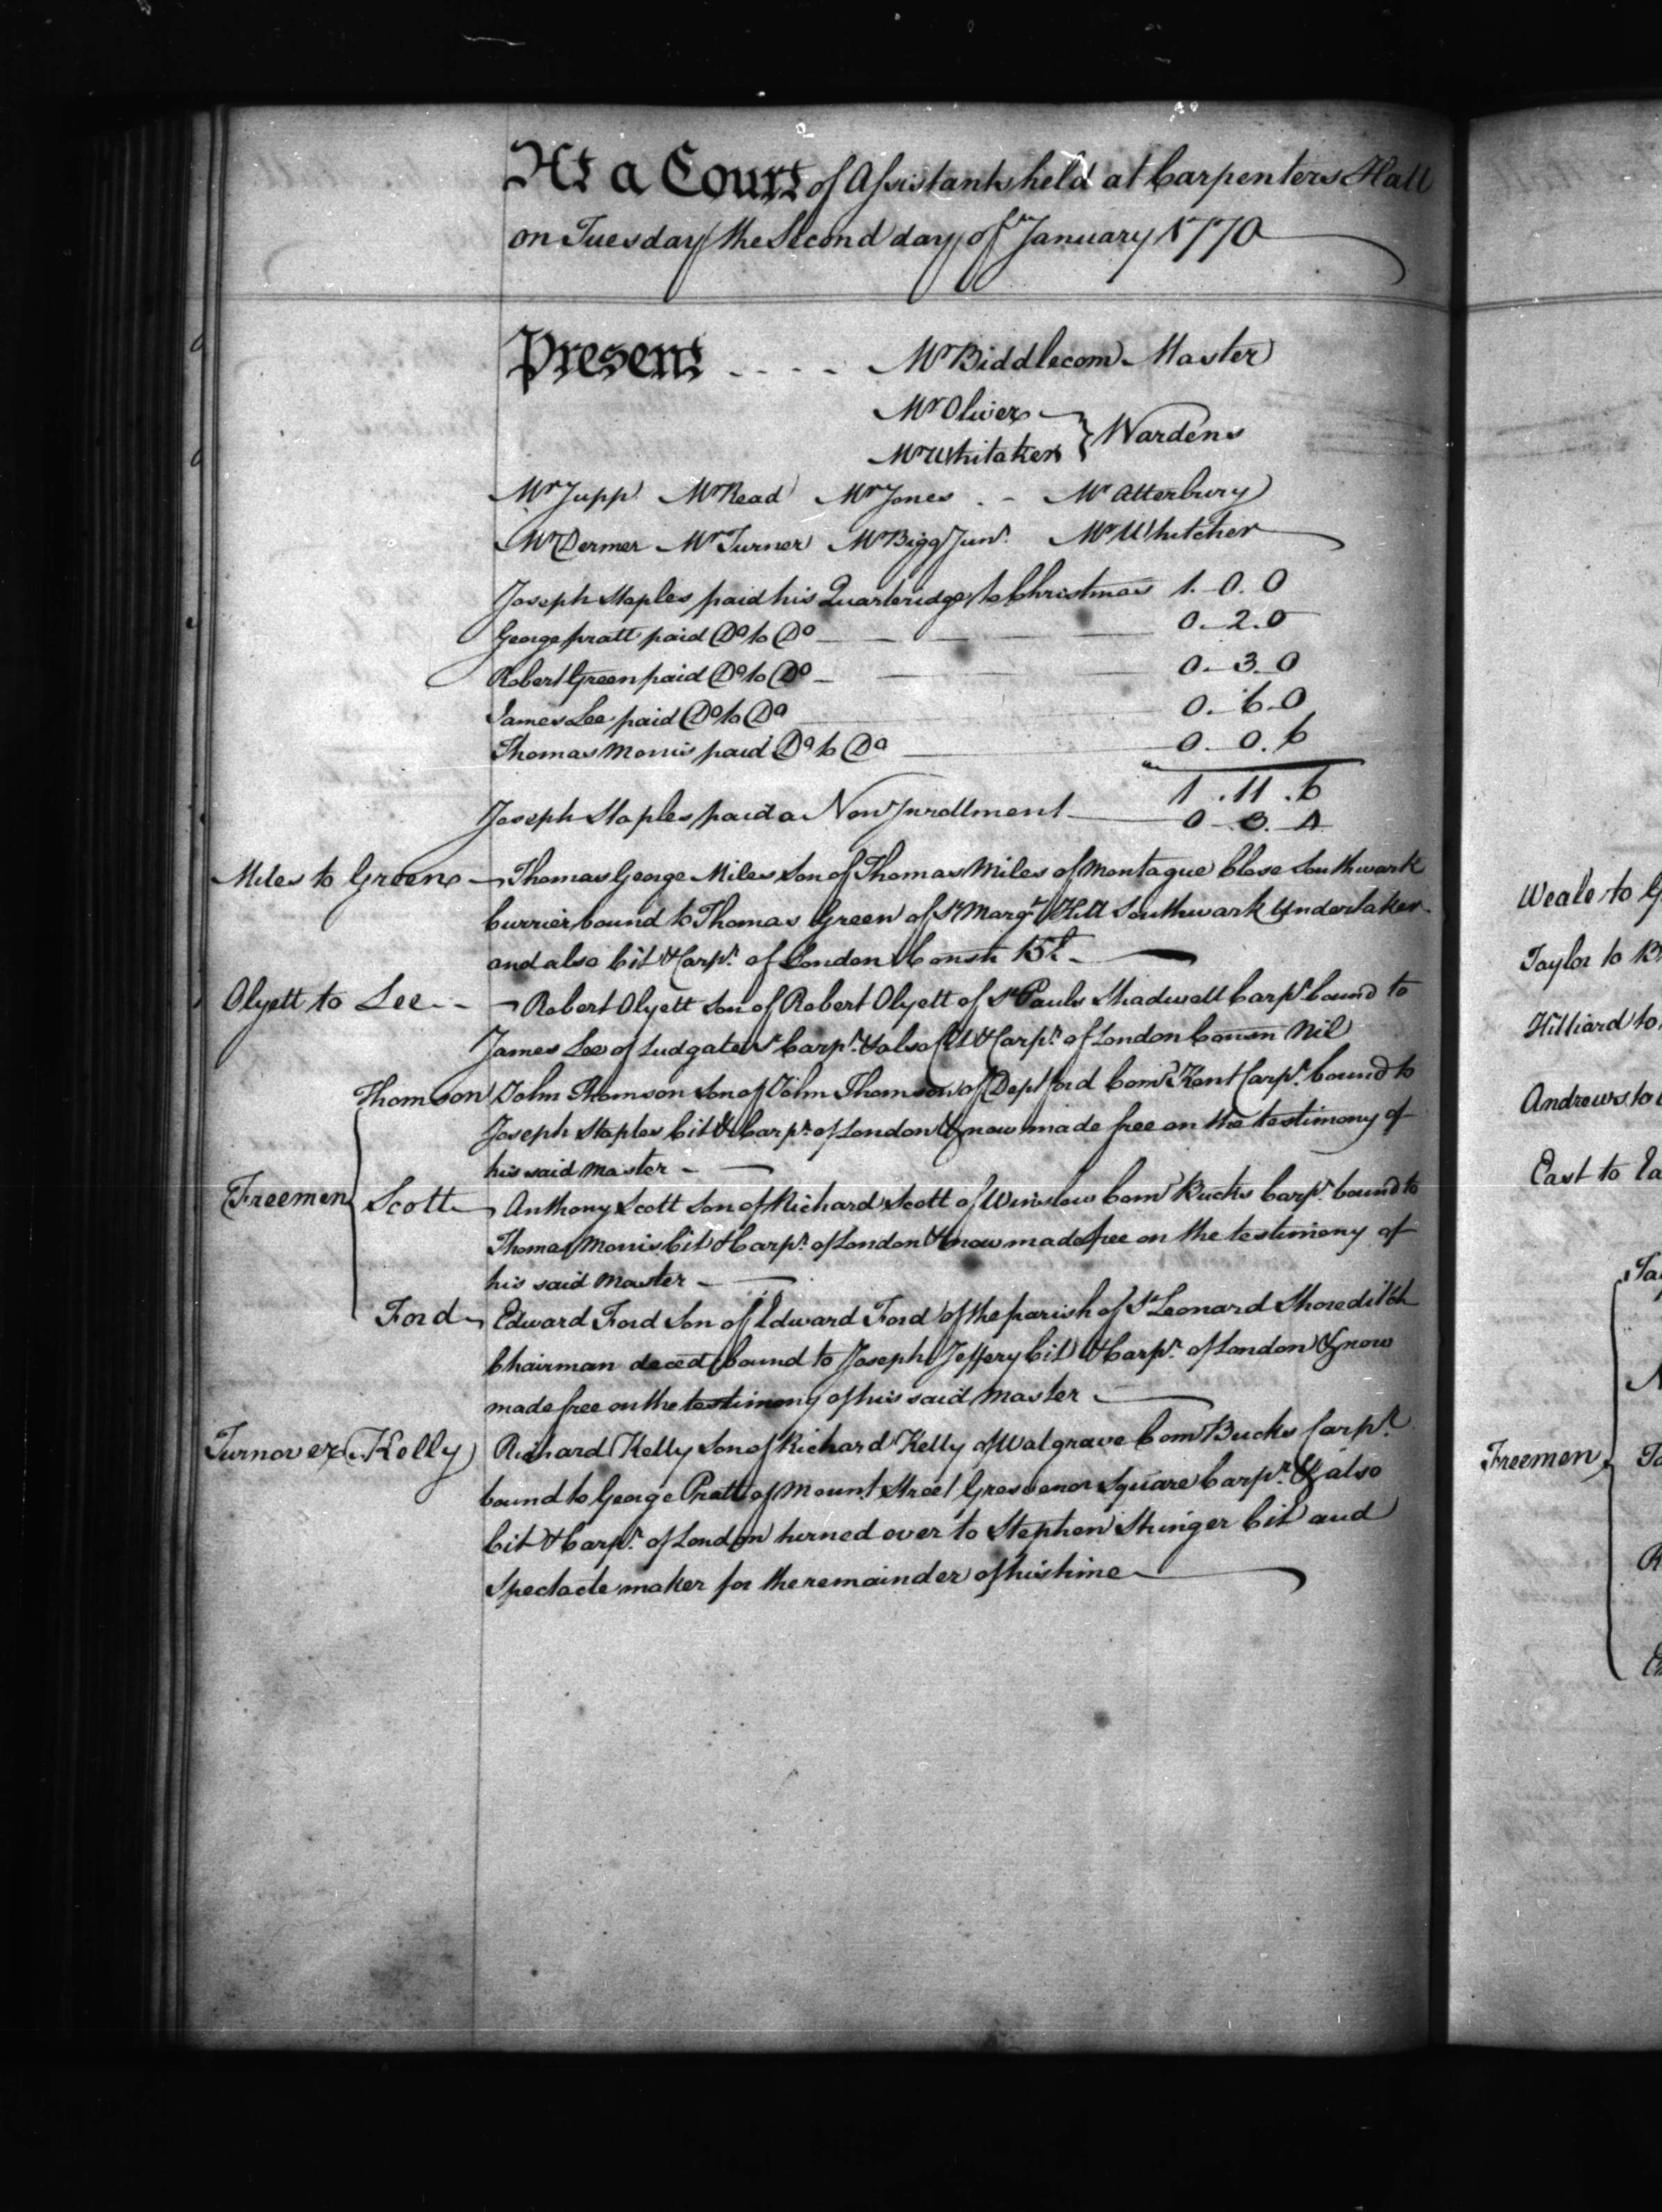 At a Court of Assistants held at Carpenters Hall
on Tuesday the Second day of January 1770
Present - - - - Mr Biddlecom Master
Mr Oliver
Mr Whitaker } Wardens
Mr Jupp Mr Read Mr Jones - - Mr Atterbury
Mr Dermer Mr Turner Mr Bigg Junr. Mr Whitcher
Joseph Staples paid his Quarteridge to Christmas 1. 0. 0
George pratt paid Do to Do 0. 2. 0
Robert Green paid Do to Do 0. 3. 0
James Lee paid Do to Do 0. 6. 0
Thomas Morris paid Do to Do 0. 0. 6
1. 11. 6
Joseph Staples paid a Non Inrollment 0. 3. 4
Miles to Green Thomas George Miles Son of Thomas Miles of Montague Close Southwark
Currier bound to Thomas Green of St Margt Hill Southwark Undertaker
and also Cit & Carpr. of London Consn 15£
Olyett to Lee Robert Olyett Son of Robert Olyett of St Pauls Shadwell Carpr bound to
James Lee of Ludgate St Carpr. & also Cit & Carpr. of London Consn Nil
Thomson John Thomson Son of John Thomson of Deptford Com Kent Carpr. bound to
Joseph Staples Cit & Carpr. of London & now made free on the testimony of
his said Master
Freemen { Scott Anthony Scott Son of Richard Scott of Winslow Com Bucks Carpr. bound to
Thomas Morris Cit & Carpr. of London & now made free on the testimony of
his said Master
Ford Edward Ford Son of Edward Ford of the parish of St Leonard Shoreditch
Chairman deced bound to Joseph Jeffery Cit & Carpr. of London & now
made free on the testimony of his said Master
Turnover Kelly Richard Kelly Son of Richard Kelly of Walgrave Com Bucks Carpr.
bound to George Pratt of Mount Street Grosvenor Square Carpr. & also
Cit & Carpr. of London turned over to Stephen Stringer Cit and
Spectacle maker for the remainder of his time
Weale to
Taylor to
Hilliard to
Andrews to
East to
Freemen {